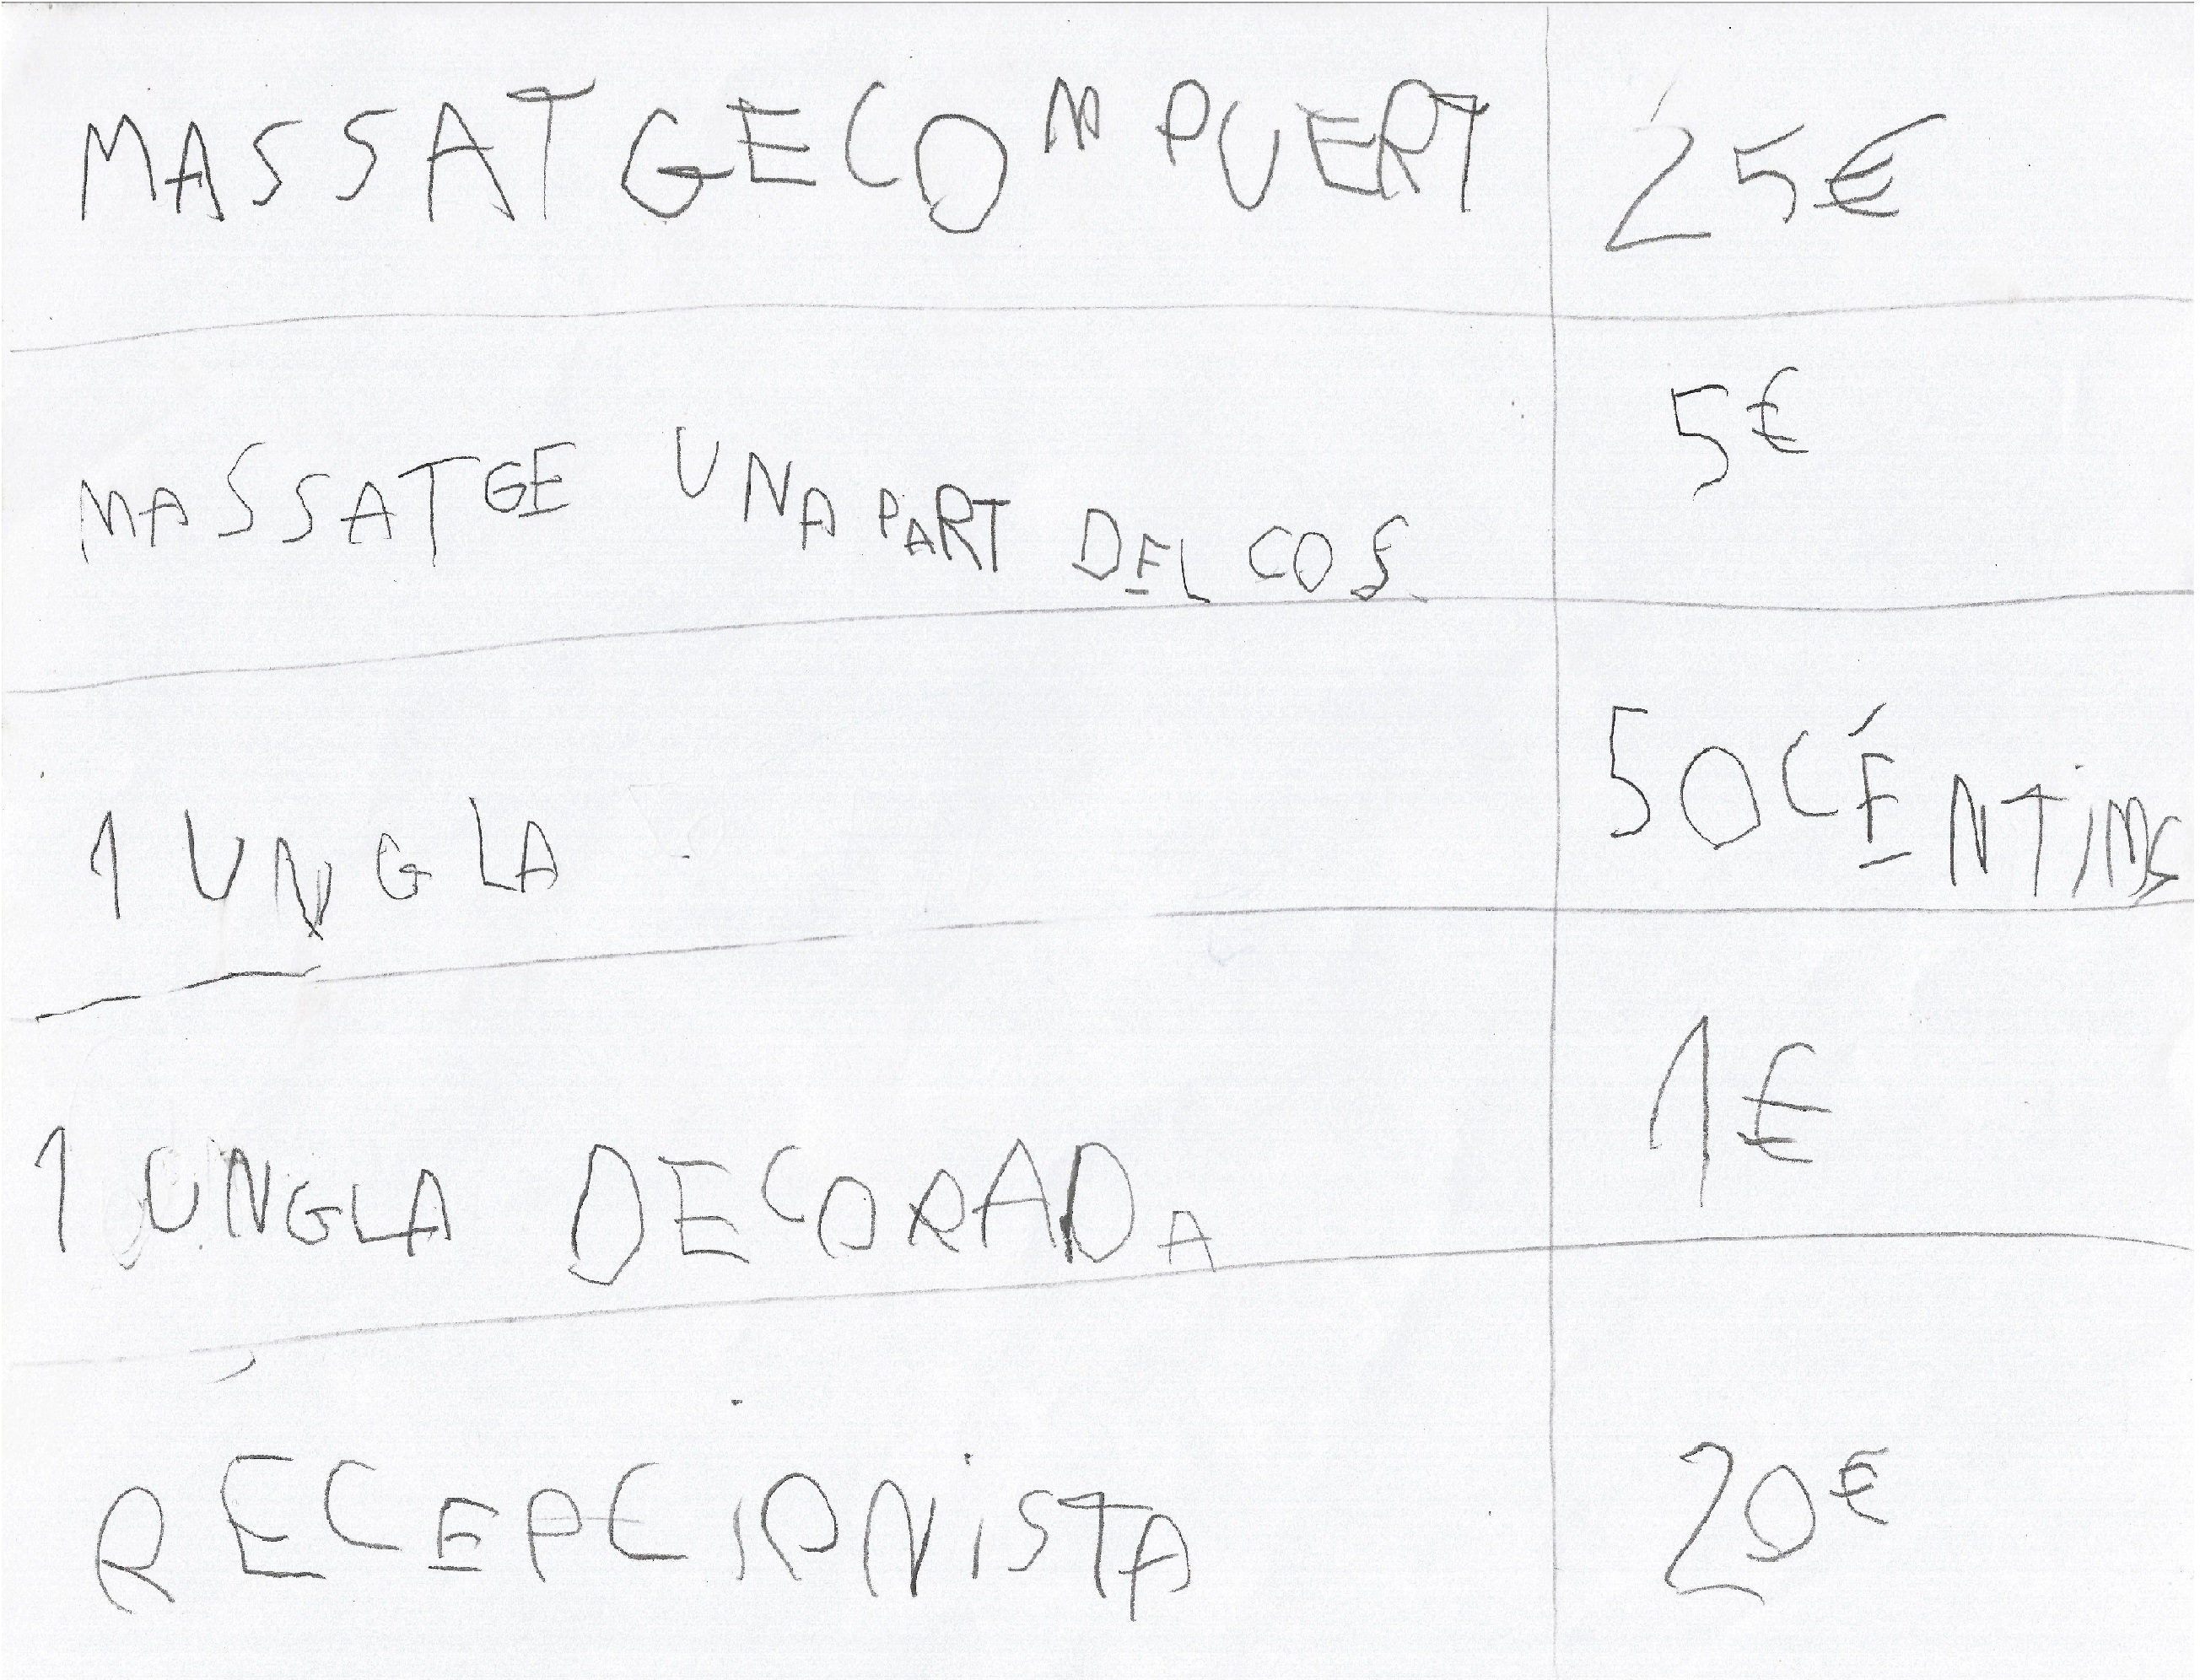 MASSATGE COM PUERT 25€
MASSATGE UNA PART DEL COS 5€
1 UNGLA 50 CÉNTiMS
1 UNGLA DECORADA 1€
RECEPCiONiSTA 20€